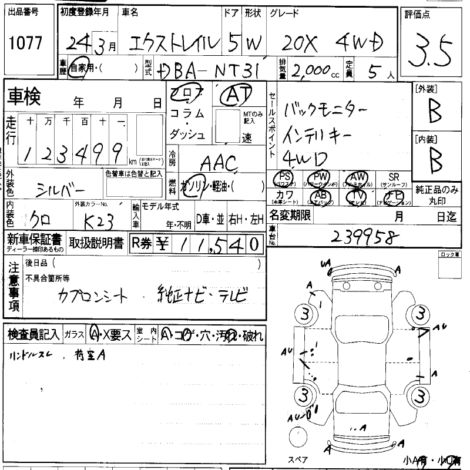 出品番号 初度登録年月 車名 ドア 形状 グレード 評価点
1077 24年3月 エクストレイル 5W 20X 4WD 3.5
車歴 自家用・( ) 型式 DBA-NT31 排気量 2,000cc 定員 5人
車検 年 月 日
フロア AT
コラム・ダッシュ MTのみ記入 速
セールスポイント
バックモニター
インテリキー
4WD
[外装] B
[内装] B
走行 十万 万 千 百 十 一
123499 km
冷房 AAC
外装色 シルバー 色替車は色替と記入
燃料 ガソリン・軽油・( )
PS PW AW SR (サンルーフ)
カワ
純正品のみ丸印
内装色 クロ 外装カラーNo. K23
輸入車 モデル年式 年・不明 D車・並 右H・左H
名変期限 月 日迄
新車保証書 ディーラー捺印あるもの 取扱説明書 R券 ¥11,540
車台No. 239958
注意事項
後日品( )
不具合箇所等
カプロンシート 純正ナビ・テレビ
検査員記入 ガラス A・X要ス 室内シート A・コゲ・穴・汚れ・破れ
ハンドルスレ
ロック車
UA A
3 3
AU A AU
3 3
A
A A
スペア
小A有・小U有